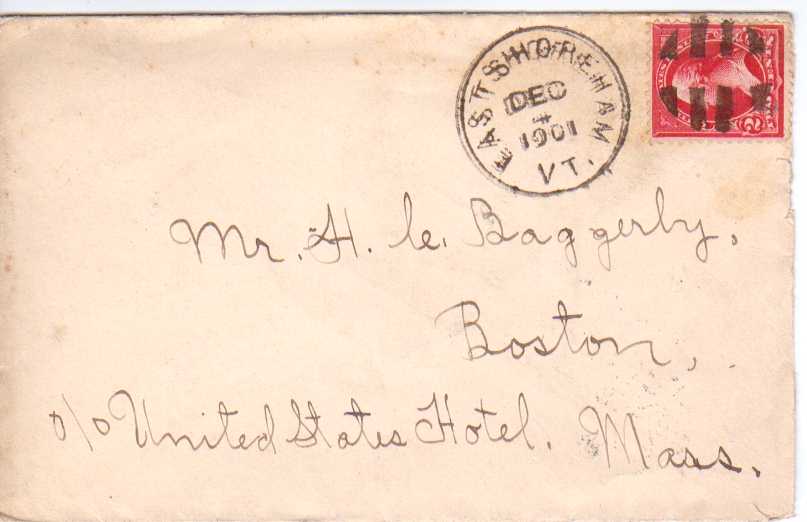 EAST SHOREHAM
DEC
4
1901
VT.
2
Mr. H. C. Baggerly,
Boston,
c/o United States Hotel. Mass.